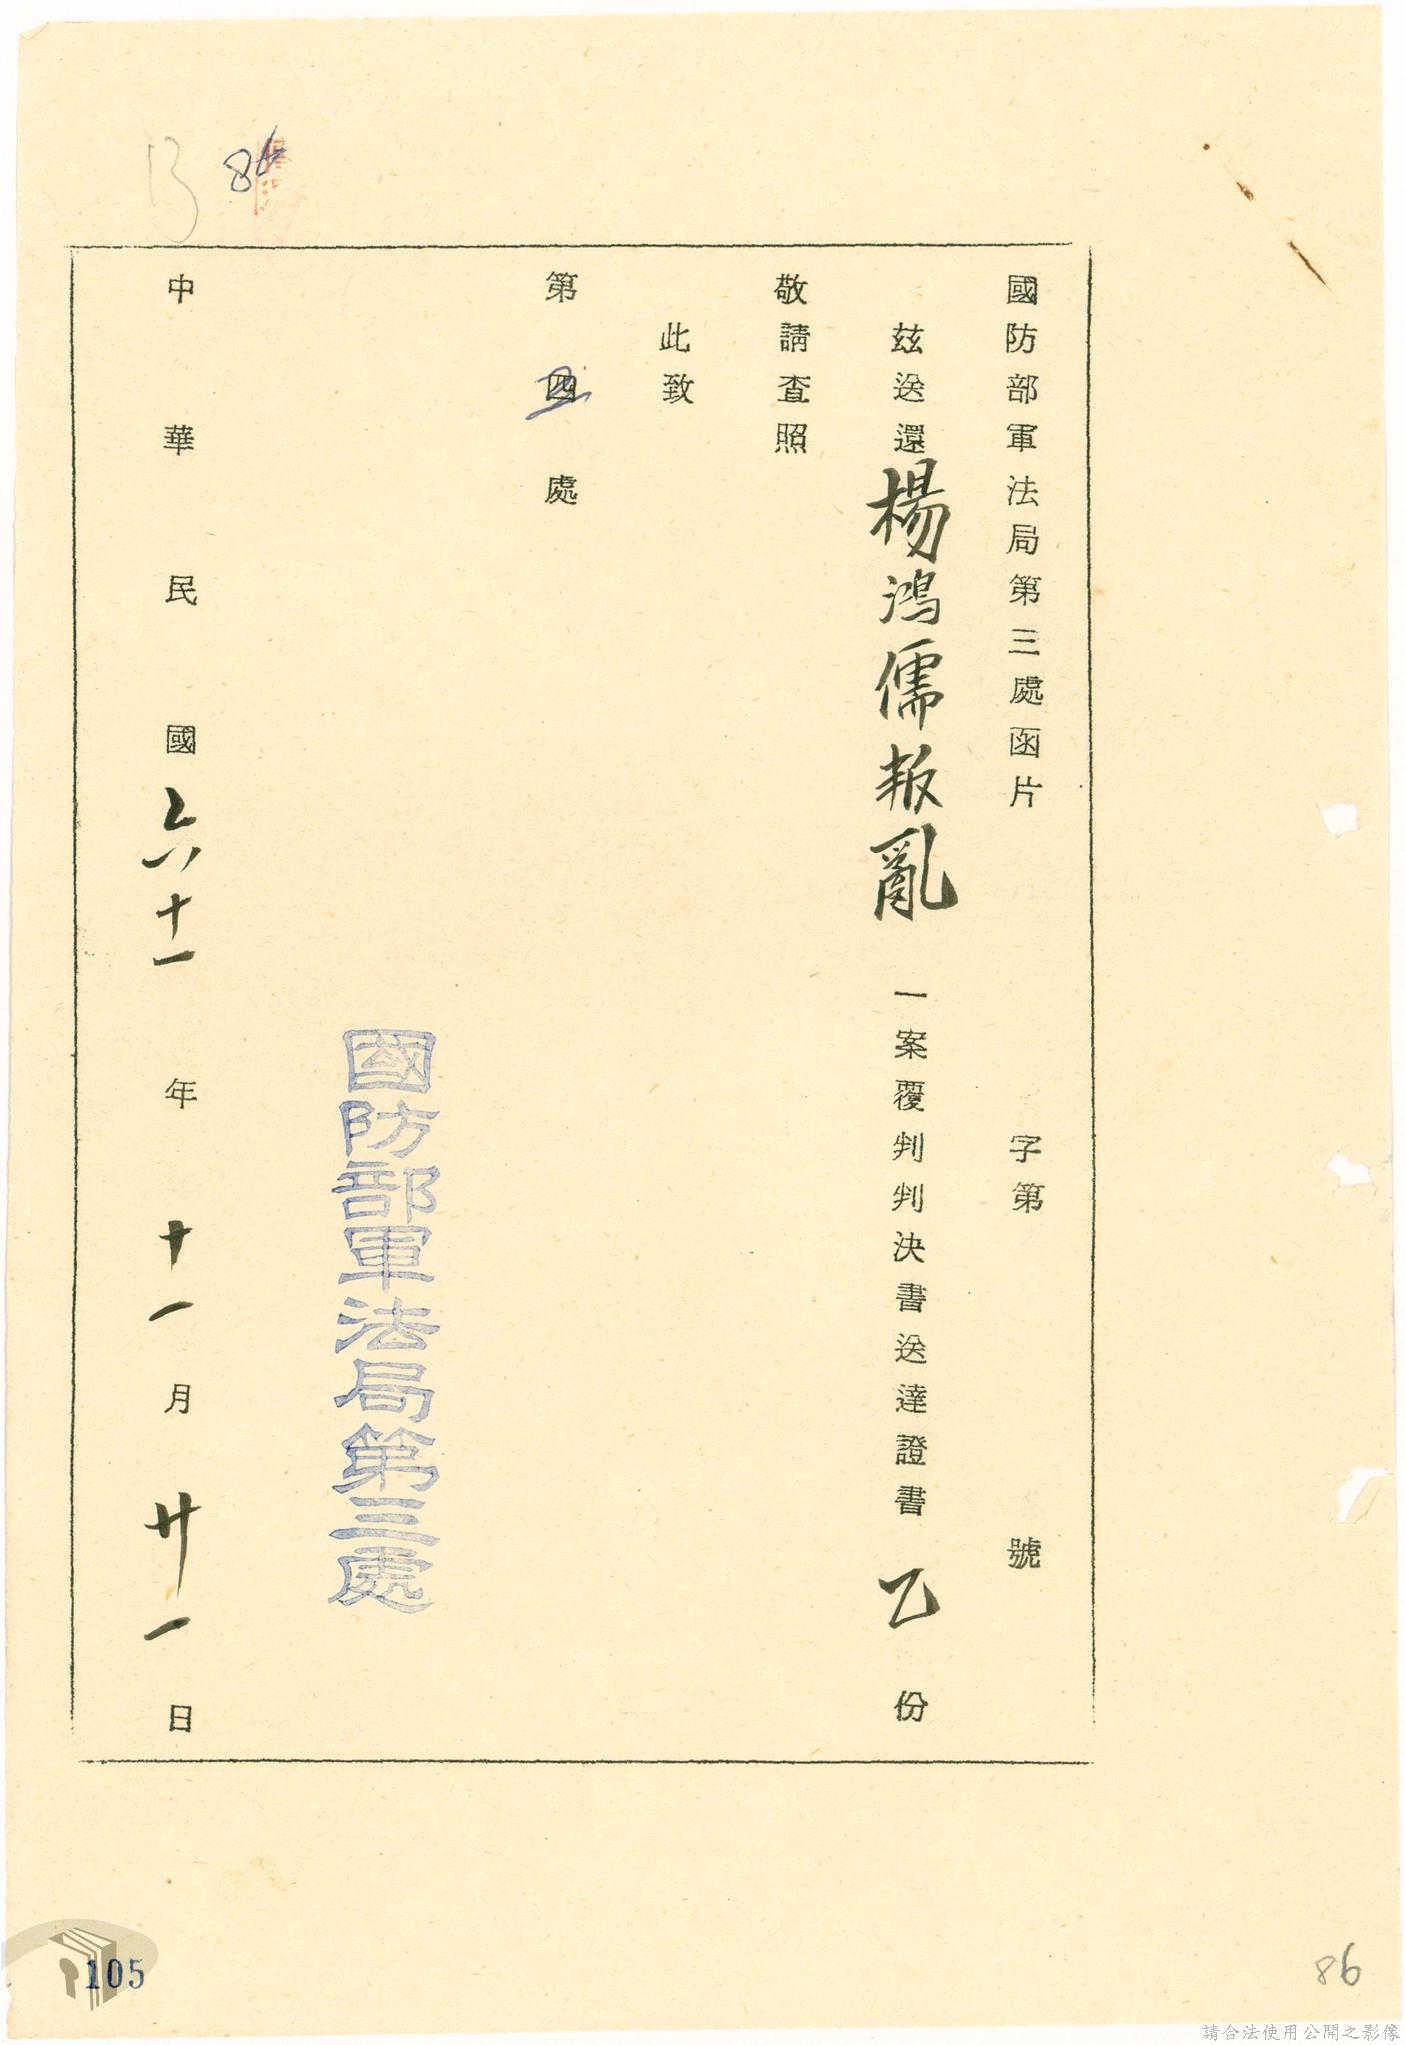 86
13
國防部軍法局第三處函片 字第 號
茲送還楊鴻儒叛亂一案覆判判決書送達證書乙份
敬請查照
此致
第四處
國防部軍法局第三處
中華民國六十一年十一月廿一日
105
86
請合法使用公開之影像